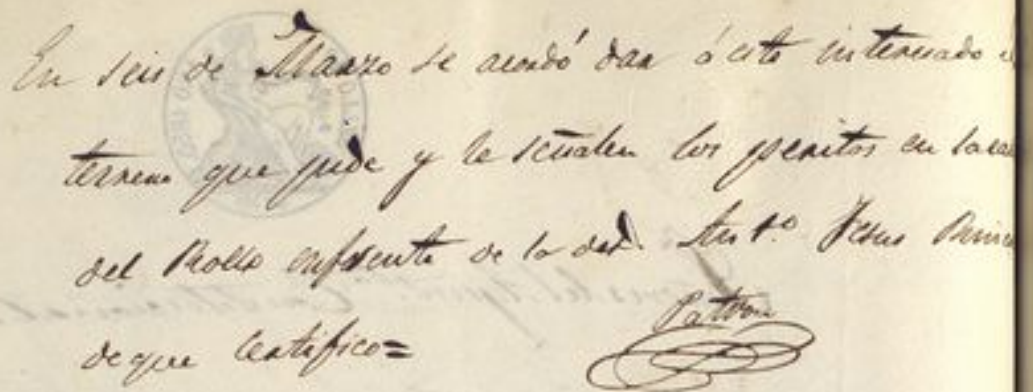 En seis de Marzo se acordó dar á este interesado el
terreno que pide y le señalen los peritos en la ca
del Rollo enfrente de la de Anto. Jesus
de que Certifico=
Patron